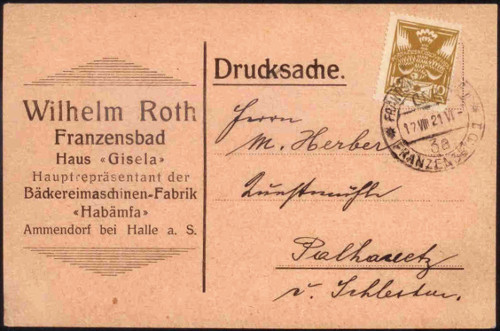 Drucksache.
Wilhelm Roth
Franzensbad
Haus «Gisela»
Hauptrepräsentant der
Bäckereimaschinen-Fabrik
«Habämfa»
Ammendorf bei Halle a. S.
Herrn
M. Herber
Kunstmühle
v. Schlestau.
10
17 VIII 21 VI-
3a
FRANZENSBAD